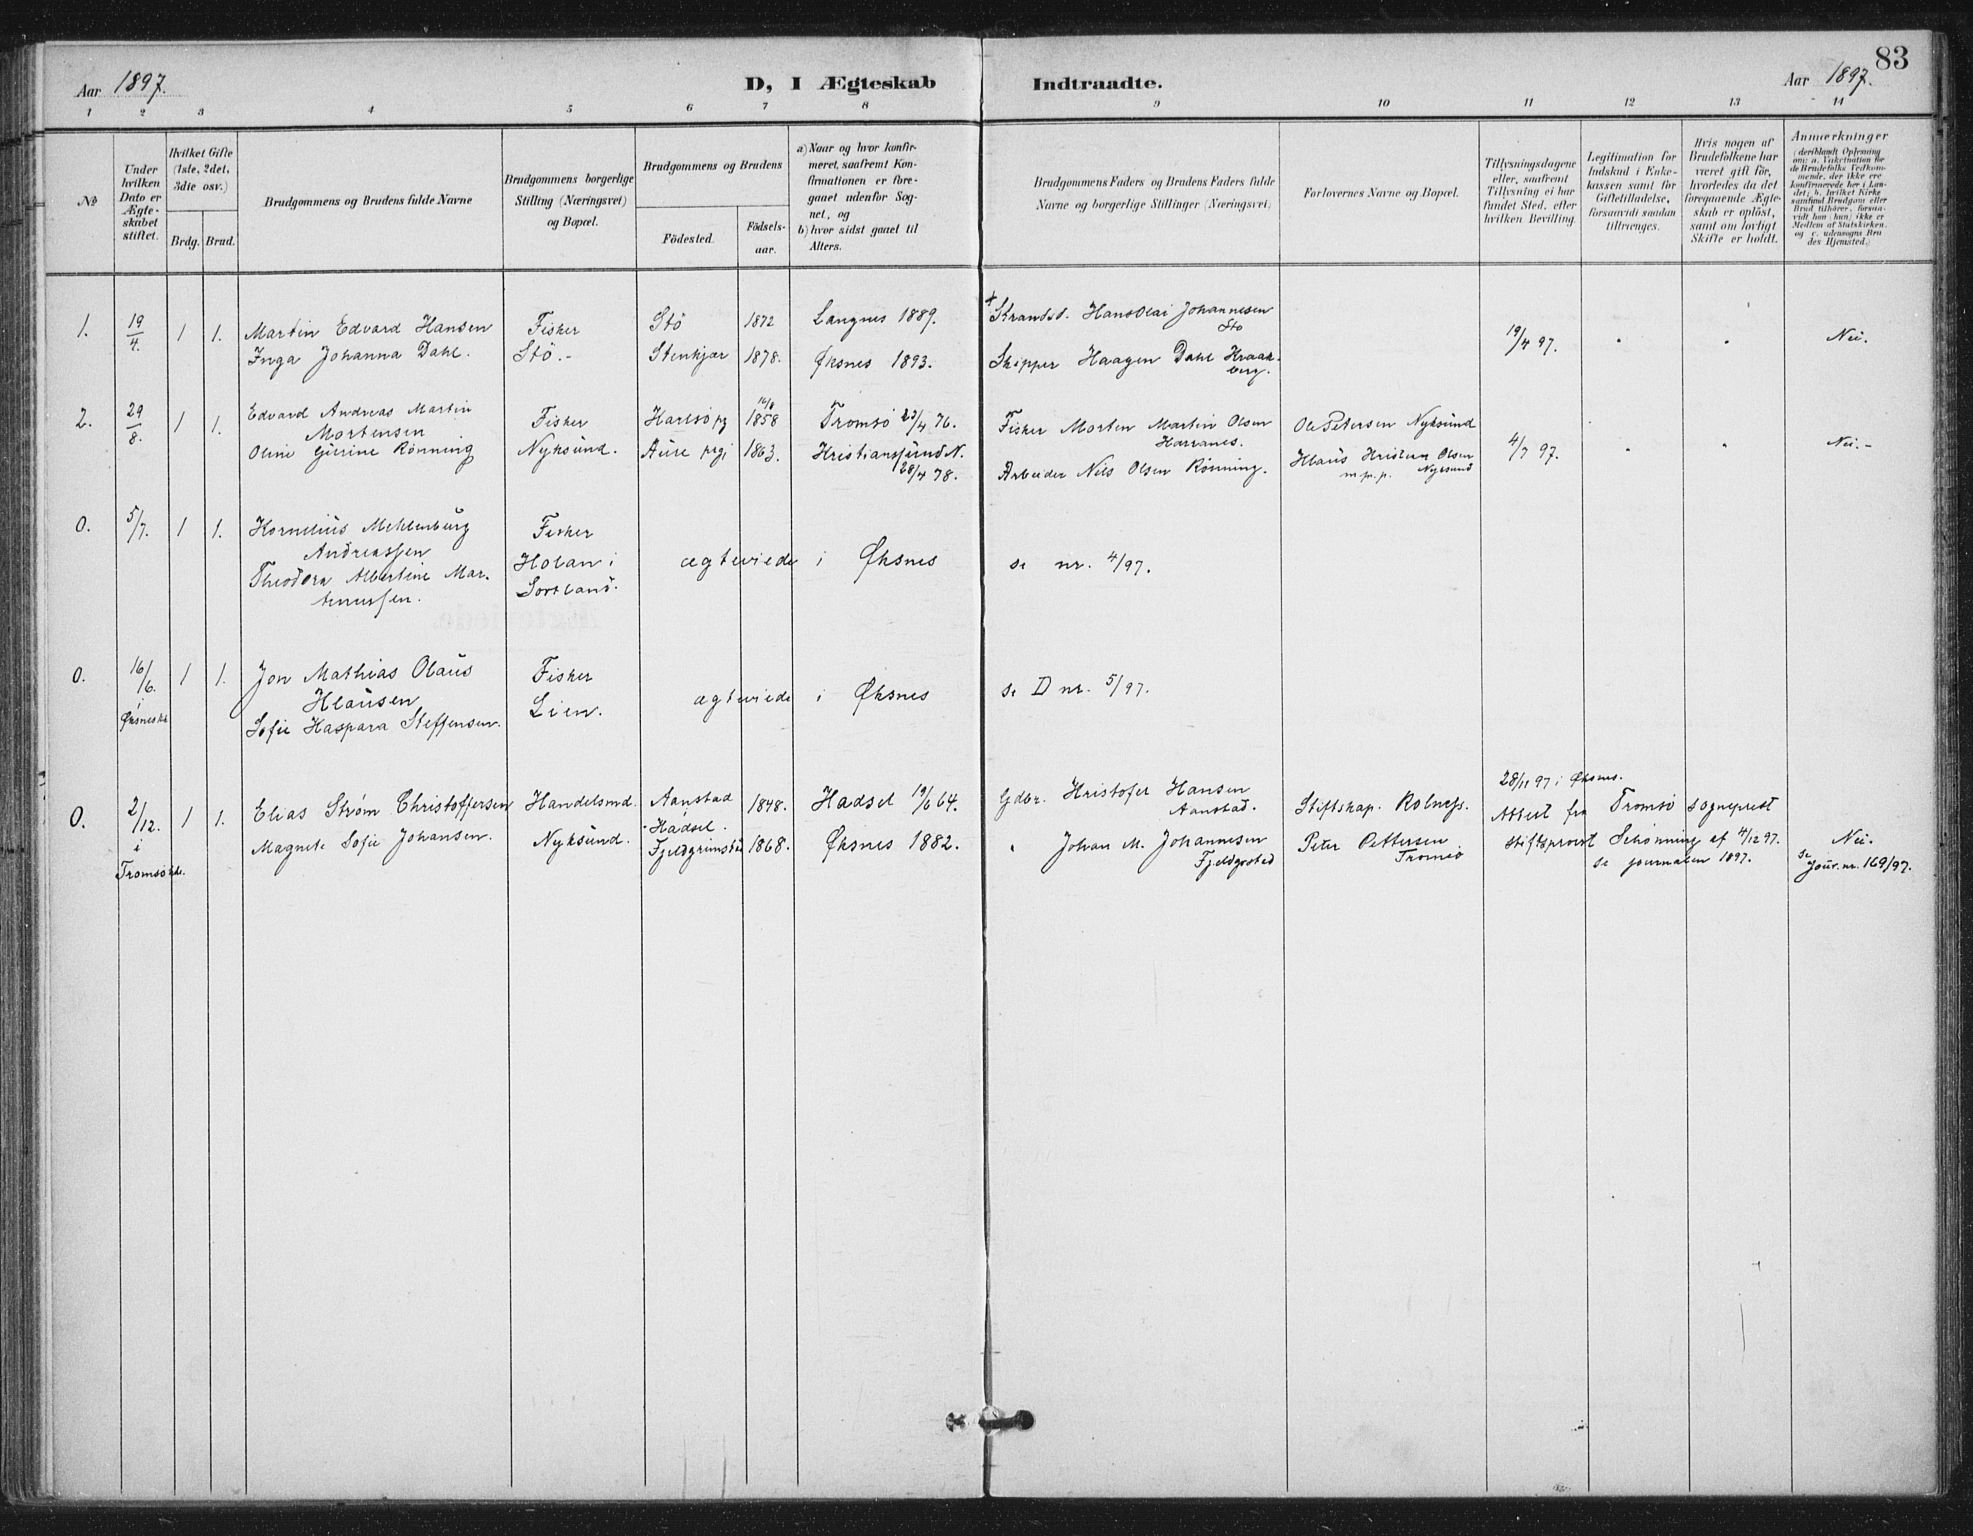 83
Aar 1897.
D, I Ægteskab Indtraadte.
Aar 1897.
1 2 3 4 5 6 7 8 9 10 11 12 13 14
No
Under
hvilken
Dato er
Ægte-
skabet
stiftet.
Hvilket Gifte
(1ste, 2det,
3die osv.)
Brdg. Brud.
Brudgommens og Brudens fulde Navne
Brudgommens borgerlige
Stilling (Næringsvei)
og Bopæl.
Brudgommens og Brudens
Födested.
Födsels-
aar.
a) Naar og hvor konfir-
meret, saafremt Kon-
firmationen er fore-
gaaet udenfor Sog-
net, og
b) hvor sidst gaaet til
Alters.
Brudgommens Faders og Brudens Faders fulde
Navne og borgerlige Stillinger (Næringsvei)
Forlovernes Navne og Bopæl.
Tillysningsdagene
eller, saafremt
Tillysning ei har
fundet Sted, efter
hvilken Bevilling.
Legitimation for
Indskud i Enke-
kassen samt for
Giftetilladelse,
forsaavidt saadan
tiltrænges.
Hvis nogen af
Brudefolkene har
været gift för,
hvorledes da det
foregaaende Ægte-
skab er oplöst,
samt om lovligt
Skifte er holdt.
Anmærkninger
(deriblandt Oplysning
om: a. Vakcination for
de Brudefolks Vedkom-
mende, der ikke ere
konfirmerede her i Lan-
det; b. hvilket Kirke
samfund Brudgom eller
Brud tilhører, forsaa-
vidt han (hun) ikke er
Medlem af Statskirken.
og c. udensogns Bru
des Hjemsted.)
1. 19/4. 1 1. Martin Edvard Hansen Fisker Stö 1872 Langnes 1889. + Strands. Hans Olai Johannesen
Stö
Inga Johanna Dahl. Stö.- Stenkjær 1878. Øksnes 1893. Skipper Haagen Dahl Kraak-
berg.
19/4 97. Nei.
2. 29/8. 1 1. Edvard Andreas Martin
Mortensen Fisker Karlsö pg 1858 Tromsö 23/4 76. Fisker Morten Martin Olsen
Harranes. Ole Petersen Nyksund
Oline Gurine Rönning Nyksund. Aure prgj 1863. Kristianssund N.
28/4 78. Arbeider Nils Olsen Rönning. Klaus Kristian Olsen
m.p.p. Nyksund
4/7 97. Nei.-
0. 5/7. 1 1. Kornelius Mehlenburg
Andreassen
Theodora Albertine Mar-
tinussen.
Fisker
Holan i
Sortland.
ægteviede i Øksnes se nr. 4/97.
0. 16/6. i Øksnes k. 1 1. Jon Mathias Olaus
Klausen
Sofie Kaspara Steffensen.
Fisker
Lien.
ægteviede i Øksnes se D nr. 5/97.
0. 2/12. i Tromsö k. 1 1. Elias Strøm Christoffersen Handelsmd. Aanstad
Hadsel. 1848. Hadsel 19/6 64. Gdbr. Kristofer Hansen
Aanstad. Stiftskap. Rolness.
Magnete Sofie Johansen. Nyksund. 1868. Øksnes 1882. " Johan M. Johannesen
Peter Pettersen
Tromsö
28/11 97 i Øksnes.
Attest fra Tromsö sogneprest
stiftsprovst Schønning af 4/12 97.
se journalen 1897.
Nei.
se
Jour. nr. 169/97.